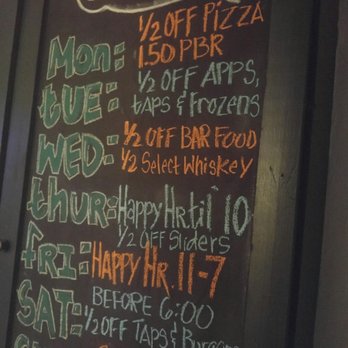 Mon: 1/2 OFF PIZZA
1.50 PBR
tUE: 1/2 OFF APPS,
tAPS & FROZENS
WED: 1/2 OFF BAR FOOD
1/2 Select Whiskey
thUR: Happy Hr. til' 10
1/2 OFF Sliders
fRI: HAPPY HR. 11-7
SAT: BEFORE 6:00
1/2 OFF TAPS & Burgers